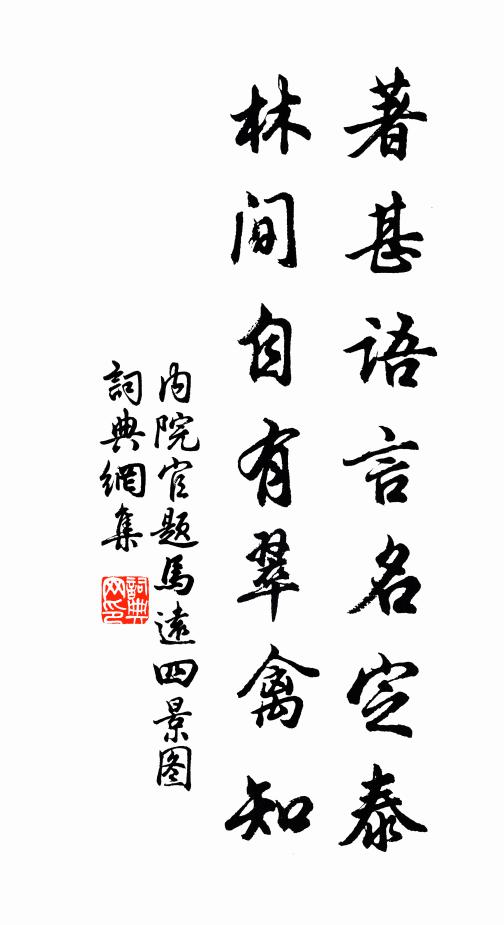 著甚語言名定泰
林间自有翠禽知
内院官题馬遠四景图
詞典網集
詞典网印